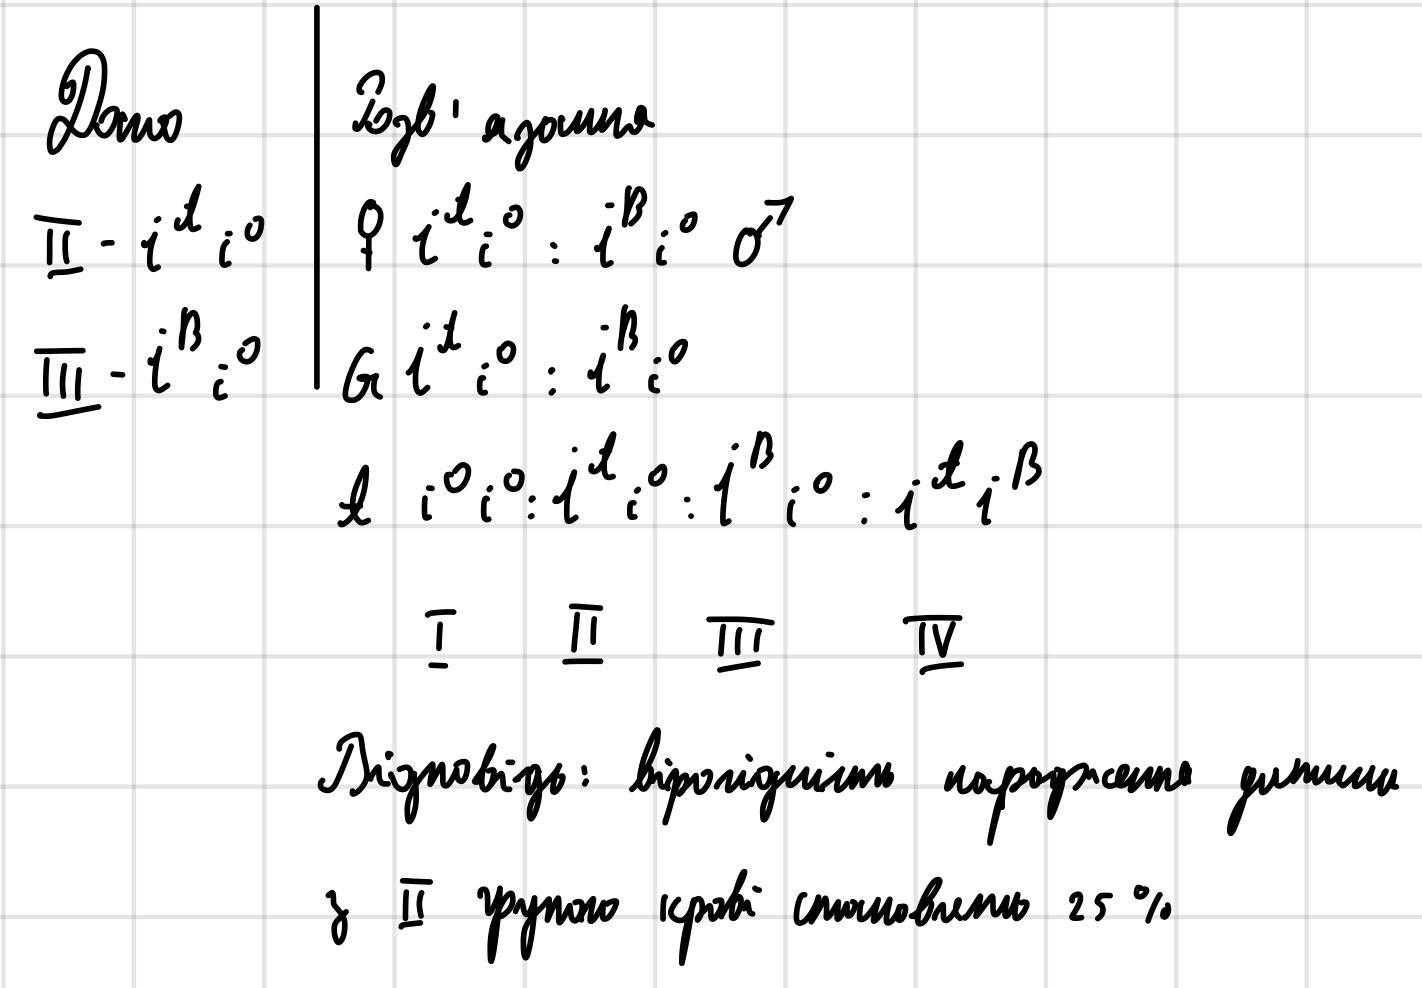 Дано
II - i^A i^0
III - i^B i^0
Розв'язання
♀ i^A i^0 : i^B i^0 ♂
G i^A i^0 : i^B i^0
A i^0 i^0 : i^A i^0 : i^B i^0 : i^A i^B
I II III IV
Відповідь: вірогідність народження дитини
з II групою крові становить 25 %